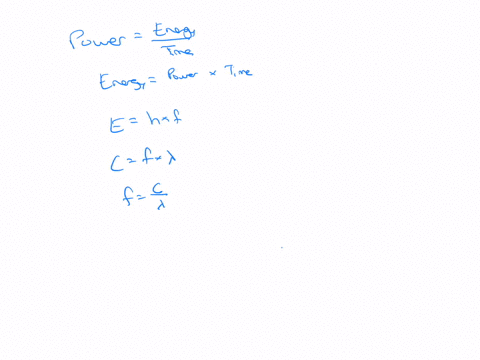 Power = Energy / Time
Energy = Power × Time
E = h × f
C = f × λ
f = C / λ